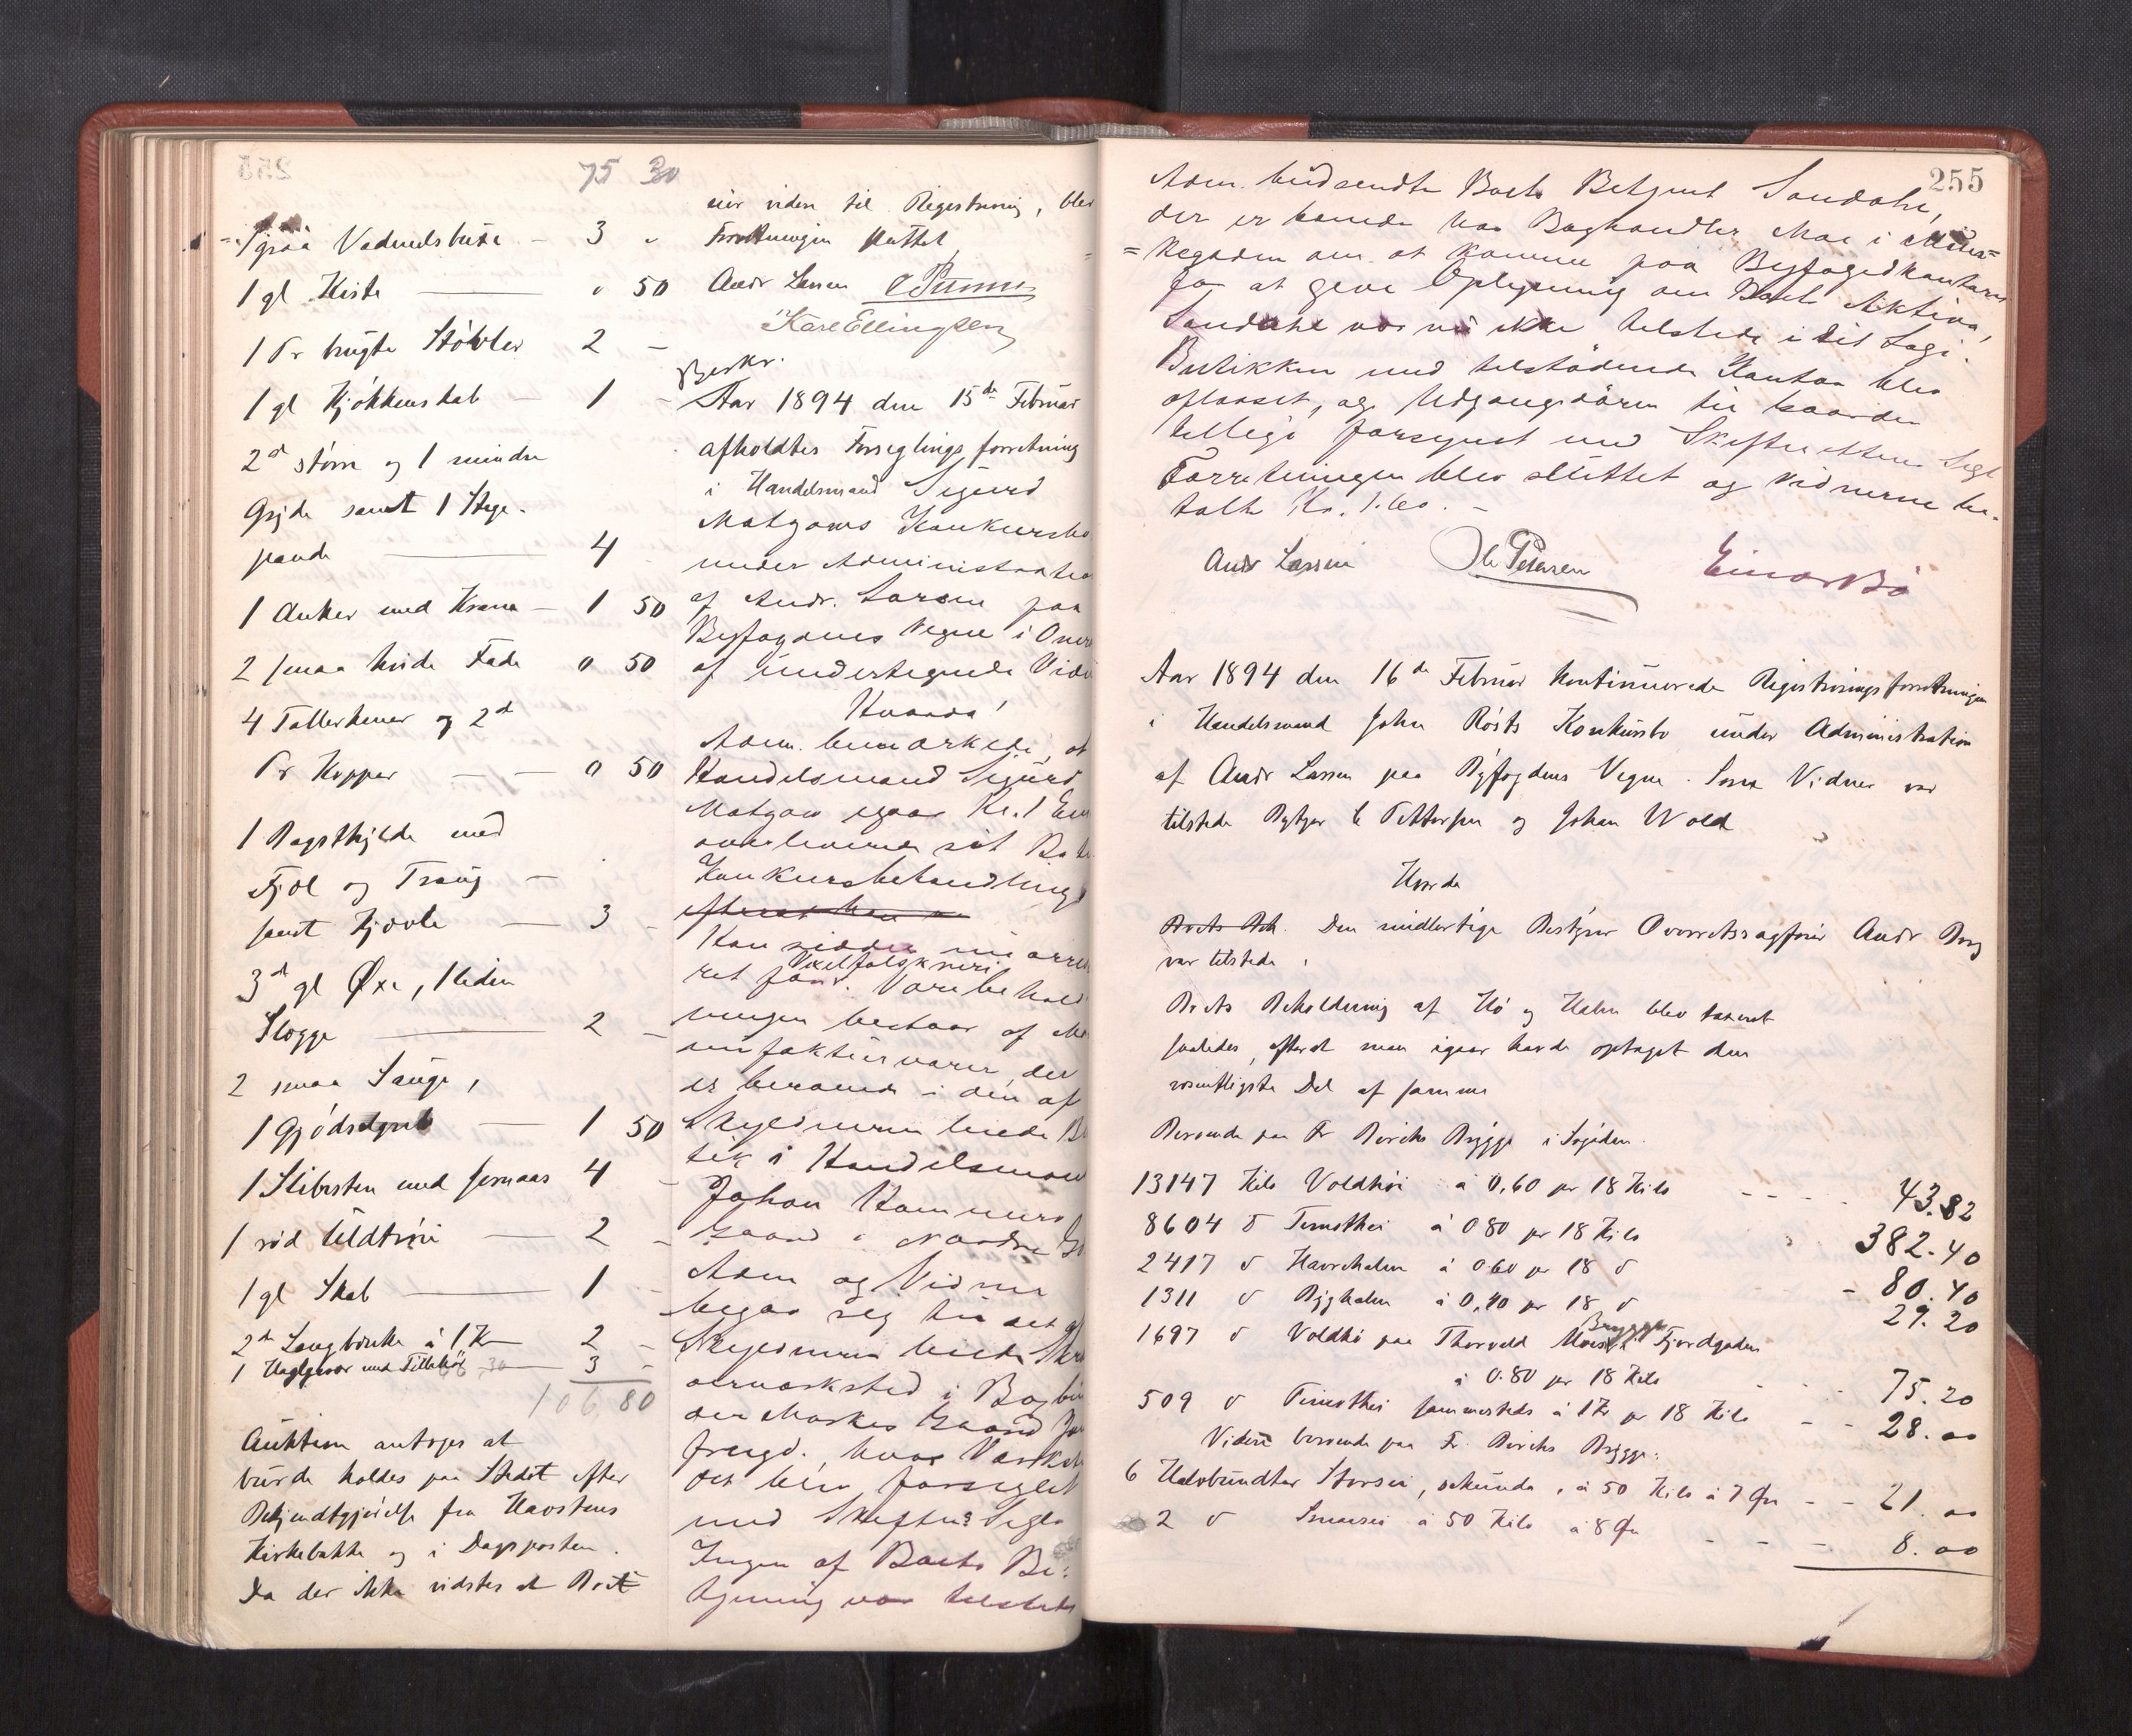 75 30
1 graa Vadmelsbuxe - 3 "
1 gl Kiste - " 50
1 Pr brugte Støvler 2 -
1 gl Kjøkkenskab - 1 -
2 st større og 1 mindre
Gryde samt 1 Stege-
pande - 4
1 Anker med Krane - 1 50
2 smaa hvide Fade 0 50
4 Tallerkener og 2 st
Pr Kopper - - 0 50
1 med
Fjøl og Traug -
samt - 3 -
3 st gl Øxe, 1 liden
Slægge - 2 -
2 smaa Sauge,
1 Gjødselgreb - 1 50
1 Slibesten med 4 -
1 rød Uldtrøie - 2 -
1 gl Skab - 1 -
2 st Langbænke à 1 Kr 2 -
1 Haglgevær med Tilbehør - 3 -
106 80
Auktion antoges at
burde holdes paa Stedet efter
Bekjendtgjørelse fra Havsteins
Kirkebakke og i Dagsposten.
Da der ikke vidstes at Boet
eier videre til Registrering, blev
Forretningen sluttet
Andr Larsen
Karl Ellingsen
Beskr.
Aar 1894 den 15de Februar
afholdtes Forseglingsforretning
i Handelsmand Sigurd
Konkursbo
under Administration
af Andr. Larsen paa
Byfogdens Vegne i Overv
af undertegnede Vidn
Hvorda!
Adm. bemærkede, at
Handelsmand Sigurd
igaar Kl. 1 Em
overleverede sit Bo til
Konkursbehandling
efterat han
Han sidder nu arre
ret for Vexelfalskneri. Varebehold
ningen bestaar af Ma
nufakturvarer, der
er beroende i den af
Skyldneren leiede Bu
tik i Handelsmand
Johan
Gaard i Nordre G
Adm og Vidner
begav sig til det af
Skyldneren leiede Skræd
derværksted i Bogbin
der Gaard
hvor Værkste
det blev forseglet
med Skiftets Segl.
Ingen af Boets Be-
tjening var tilstede
255
Adm. budsendte Boets Betjent Sandahl,
der er boende hos Boghandler Moe i
=kegaden om at komme paa Byfogedkontoret
for at give Oplysning om Boets Aktiva!
Sandahl var nu ikke tilstede i sit Logi.
Butikken med tilstødende Kontor blev
aflaaset, og Udgangsdøren til Gaarden
tillige forsynet med Skifterettens Segl
Forretningen blev sluttet og Vidnerne be-
talte Kr. 1.60. -
Andr Larsen Ole Petersen Einar Bö
Aar 1894 den 16de Februar kontinuerede Registreringsforretningen
i Handelsmand John Røsts Konkursbo under Administration
af Andr Larsen paa Byfogdens Vegne. Som Vidner var
tilstede Bytjen E Pettersen og Johan Wold
Hvorda
Boets Beh. Den midlertidige Bestyrer Overretssagfører Andr Berg
var tilstede.
Boets Beholdning af Hø og Halm blev taxeret
saaledes, efterat man igaar havde optaget den
væsentligste Del af samme
Beroende paa Fr Birchs Brygge i
13147 Kilo Voldhøi à 0,60 pr 18 Kilo - - - - 43.82
8604 " Timothei à 0 80 pr 18 Kilo 382.40
2417 " Havrehalm à 0.60 pr 18 " - 80.40
1311 " Byghalm à 0,40 pr 18 " 29.20
1697 " Voldhø paa Thorvald Brygge i Fjordgaden
à 0.80 pr 18 Kilo - - - 75.20
509 " Timothei sammesteds à 1 Kr pr 18 Kilo - - 28.00
Videre beroende paa Fr. Birchs Brygge:
6 Halvbundter Storsei, sekunda, à 50 Kilo à 7 Øre - - 21.00
2 " Smaasei à 50 Kilo à 8 Øre - - - 8.00